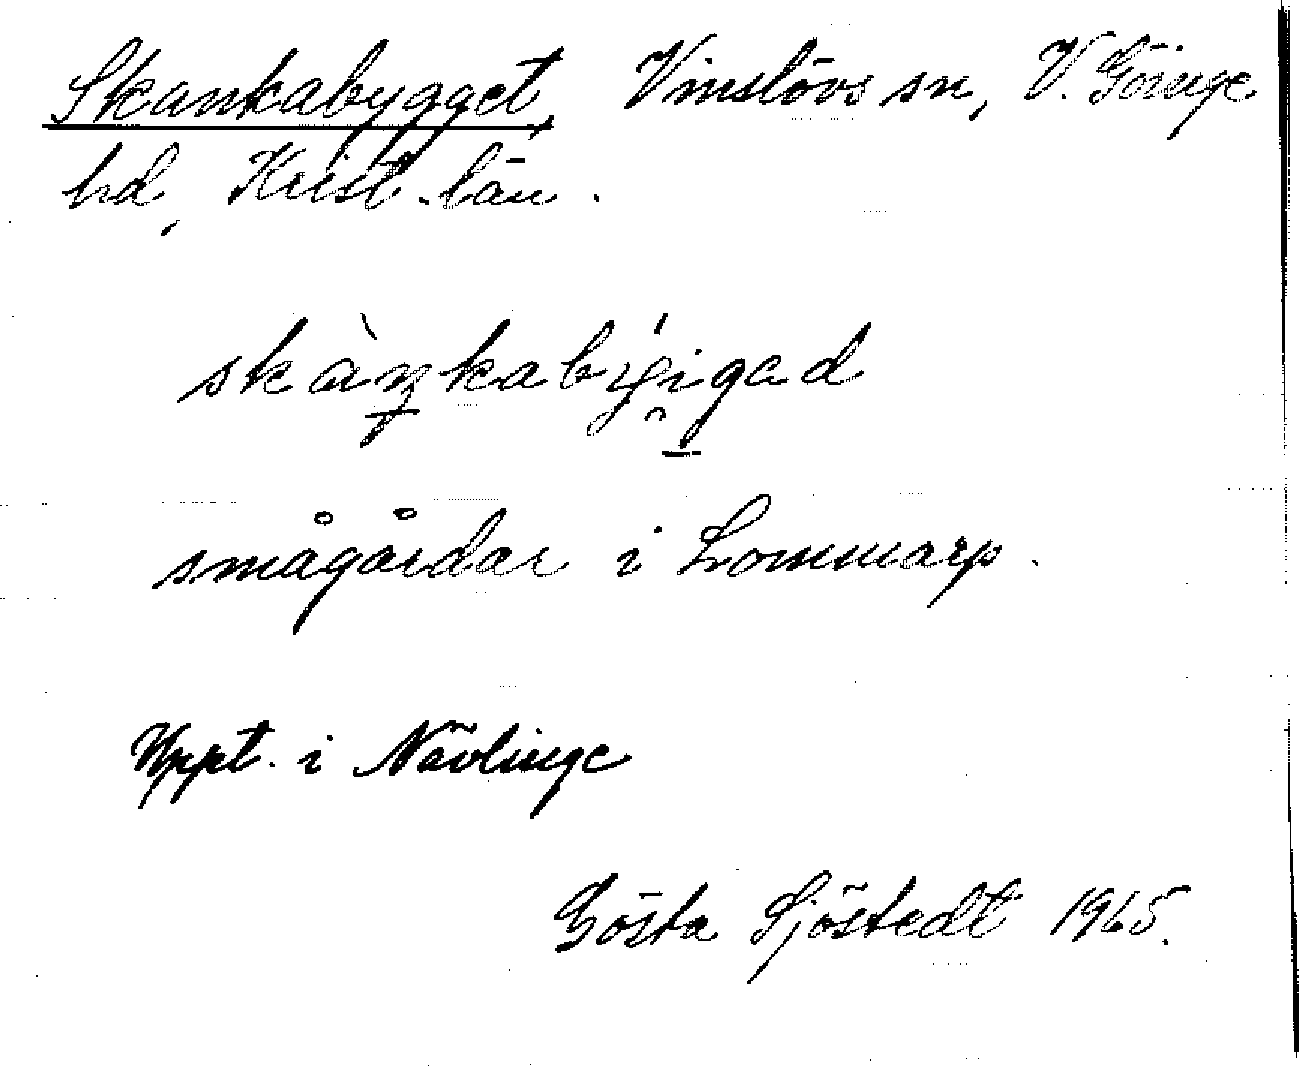 Skankabygget, Vinslövs sn, V. Göinge
hd, Krist. län.
skàŋkabýi̯gad
smågårdar i Lommarp.
Uppt. i Nävlinge
Gösta Sjöstedt 1965.